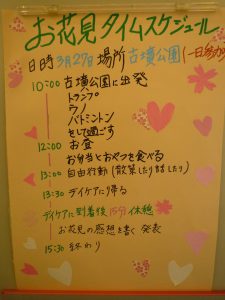 お花見タイムスケジュール
日時 3月27日 場所 古墳公園 (一日参加
10:00 古墳公園に出発
トランプ
ウノ
バドミントン
をして過ごす
12:00 お昼
お弁当とおやつを食べる
13:00 自由行動 (散策したり話したり)
13:30 デイケアに帰る
デイケアに到着後 15分休憩
お花見の感想を書く 発表
15:30 終わり